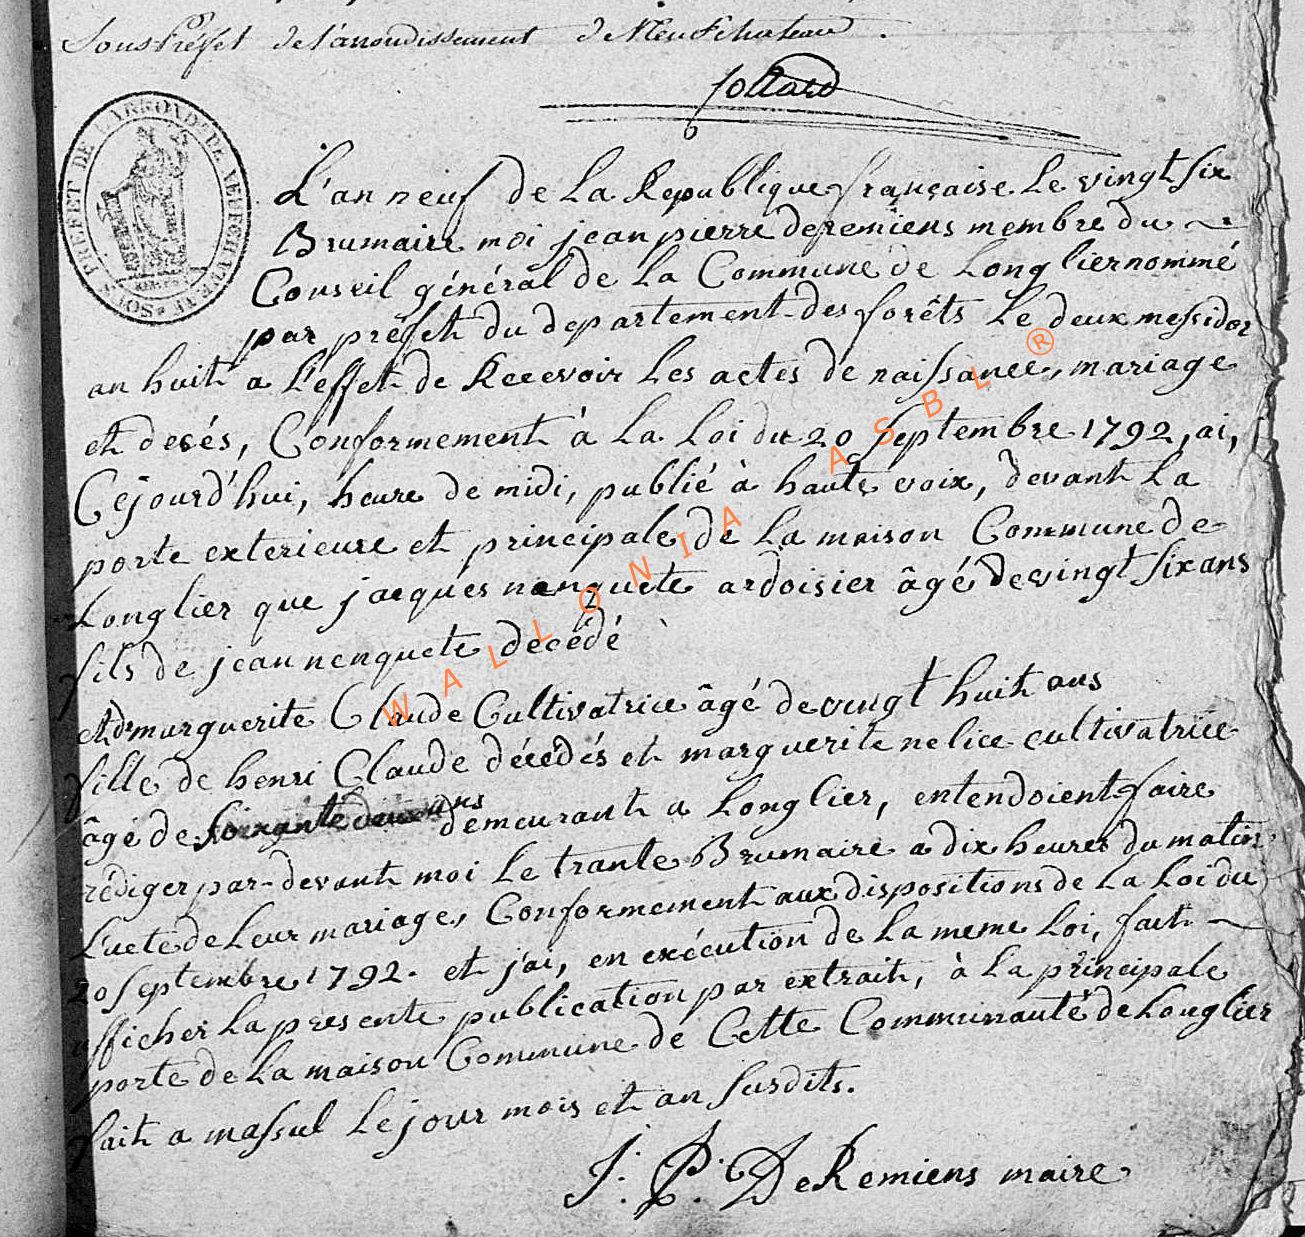 Sous Préfet de l'arrondissement de Neufchateau.
Collard
SOUS PREFET DE L'ARROND.T DE NEUFCHATEAU
L'an neuf de La Republique française Le vingt six
Brumaire moi jean pierre deremiens membre du
Conseil général de La Commune de Longlier nommé
par préfet du departement des forêts Le deux messidor
an huit a l'effet de Recevoir Les actes de naissance, mariage
et decés, Conformement à La Loi du 20 septembre 1792, ai,
Cejourd'hui, heure de midi, publié à haute voix, devant La
porte exterieure et principale de La maison Commune de
Longlier que jacques nenquete ardoisier âgé de vingt six ans
fils de jean nenquete decédé
et de marguerite Claude Cultivatrice âgé de vingt huit ans
fille de henri Claude décédés et marguerite nelice cultivatrice
âgé de soixante deux ans demeurant a Longlier, entendoient faire
rédiger par-devant moi Le trante Brumaire a dix heures du matin
L'acte de Leur mariage, Conformement aux dispositions de La Loi du
20 septembre 1792. et j'ai, en exécution de La meme Loi, fait
afficher La presente publication par extrait, à La principale
porte de La maison Commune de Cette Communauté de Longlier
fait a massul Le jour mois et an susdits.
J. P. DeRemiens maire
WALLONIA ASBL ®